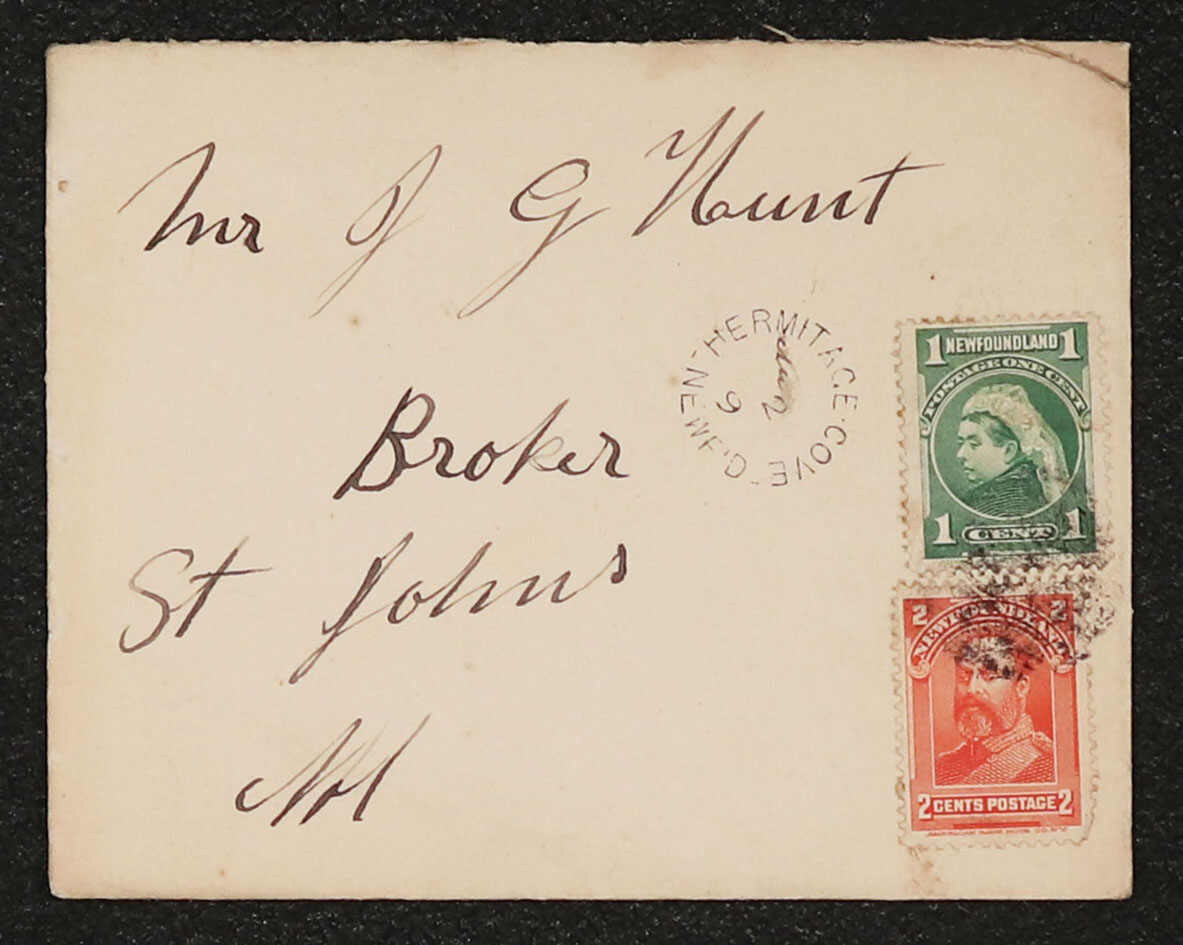 Mr J G Hunt
HERMITAGE·COVE
NEW
9
2
Broker
St Johns
Nfl
1 NEWFOUNDLAND 1
POSTAGE ONE CENT
1 CENT 1
2 2
NEWFOUNDLAND
2 CENTS POSTAGE 2